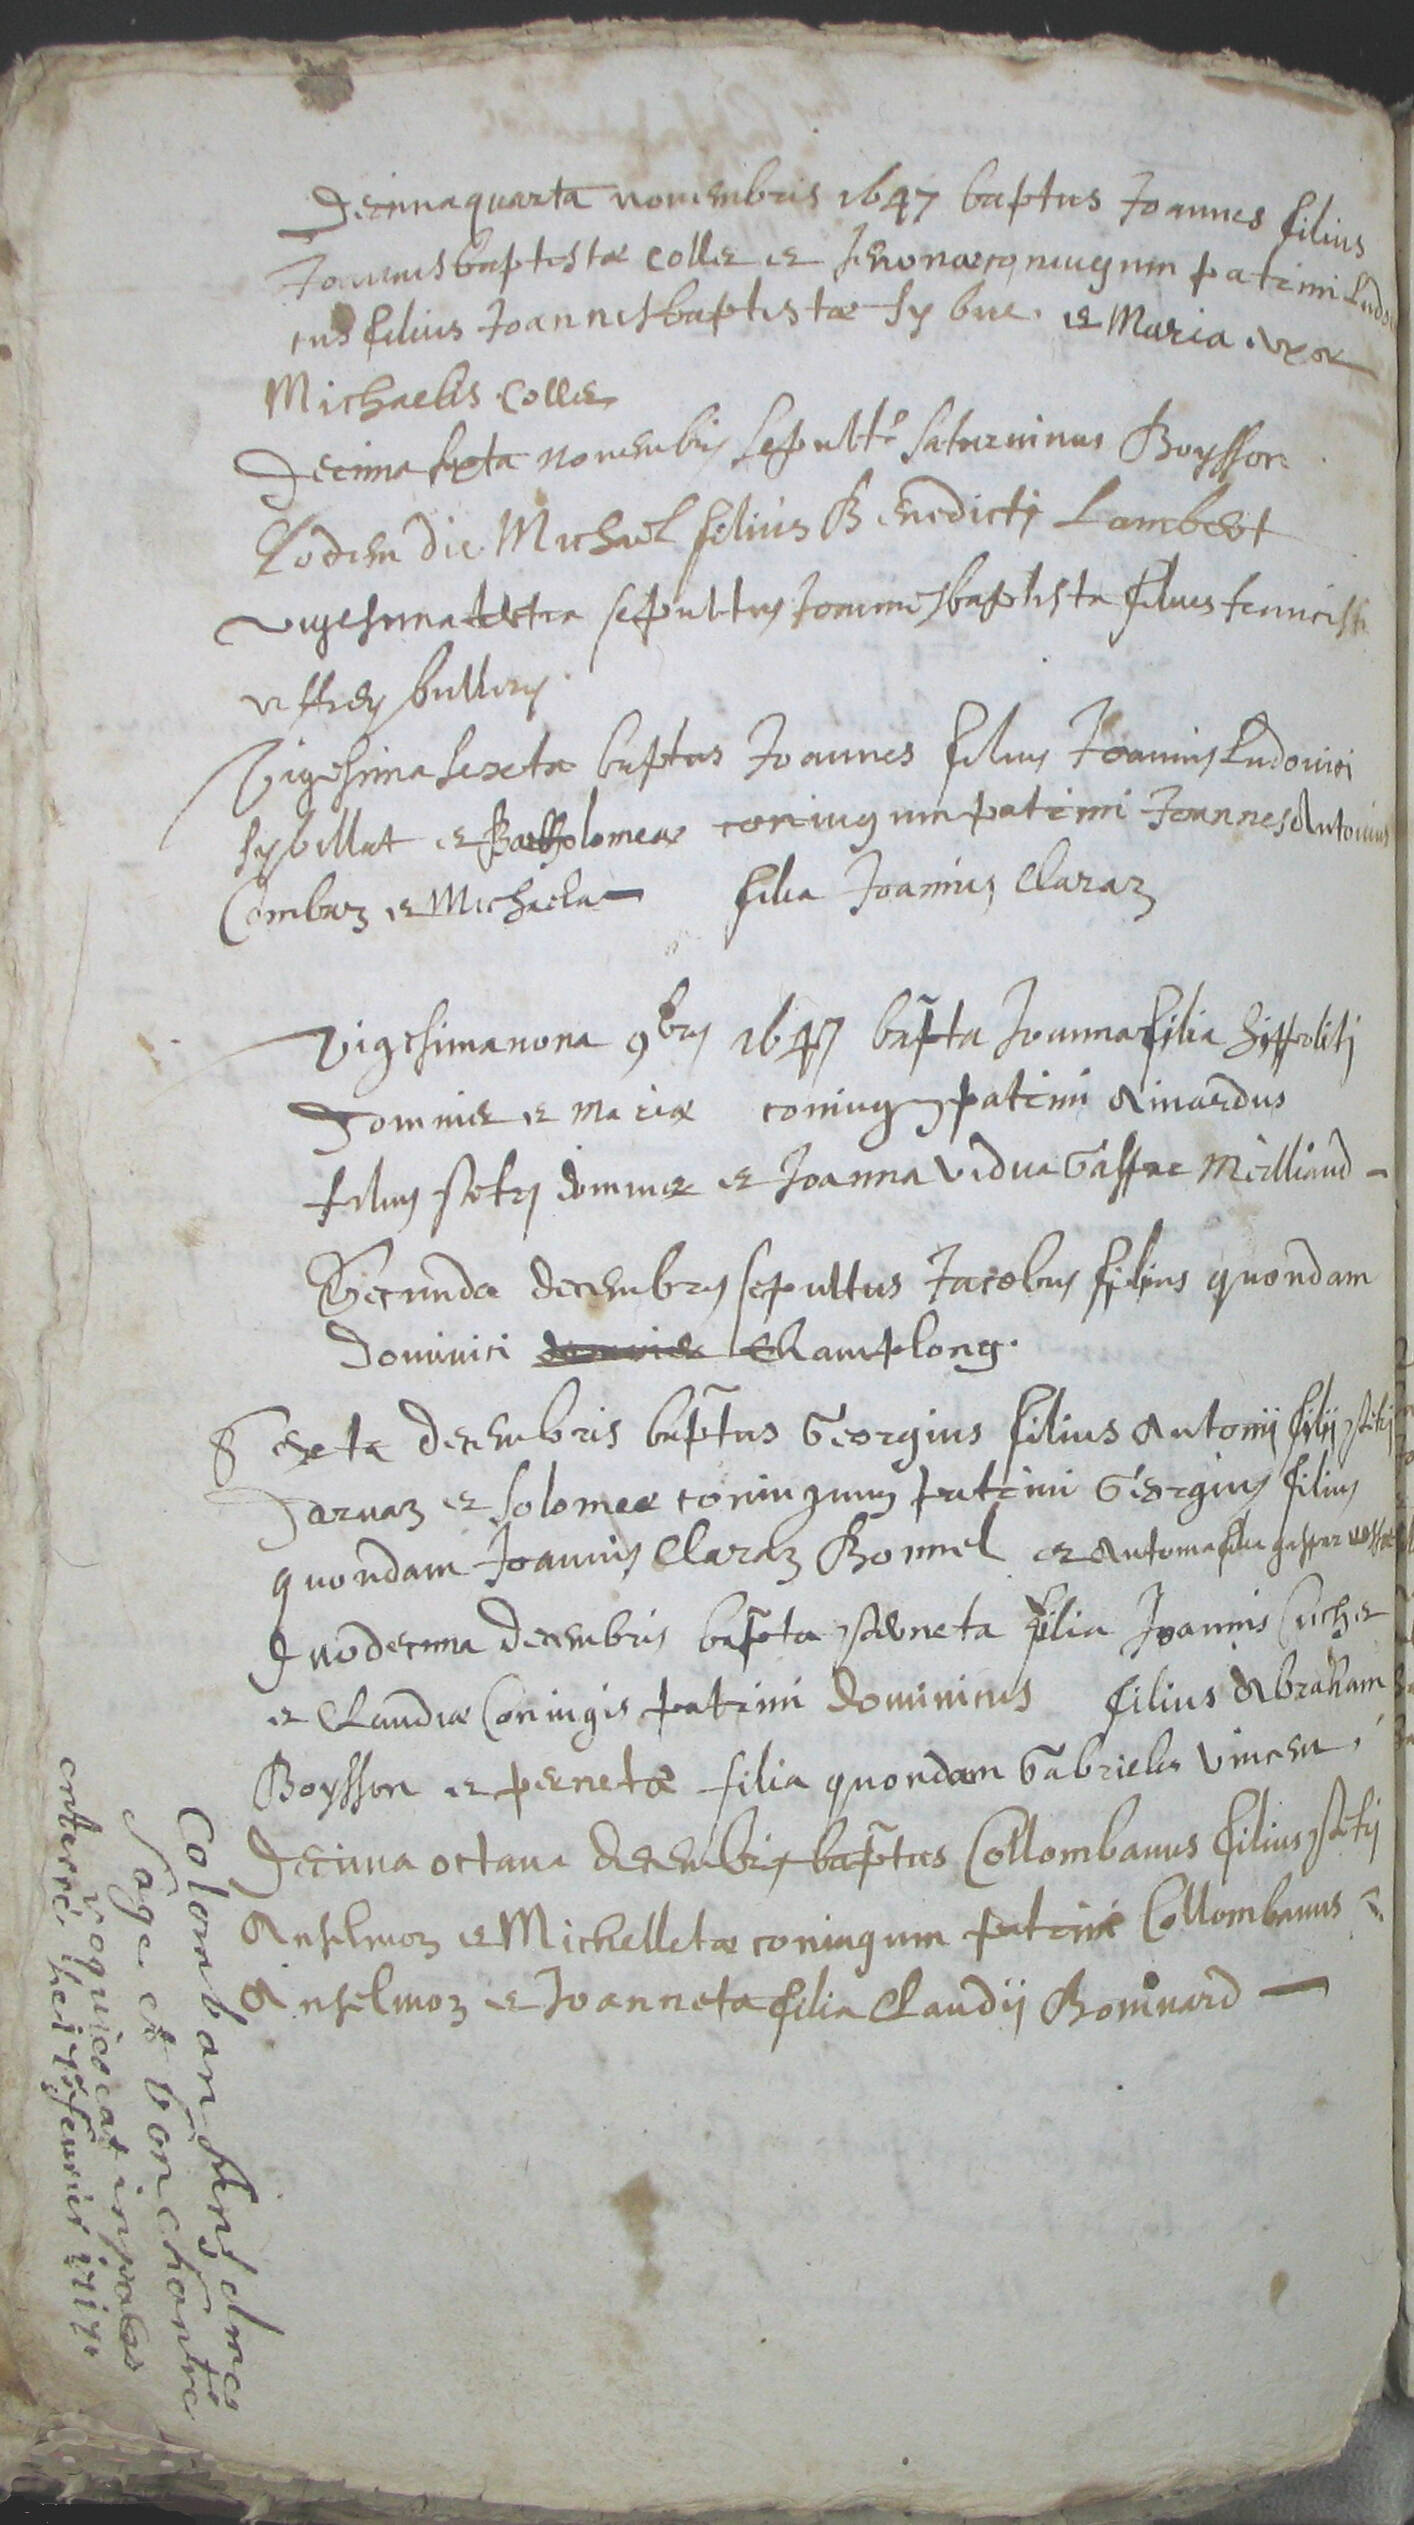 Decimaquarta novembris 1647 baptus Joannes filius
Joannisbaptistæ Colle et coniugum patrini Ludovi
cus filius Joannisbaptistæ Sybue. et Maria uxor
Michaelis Colle
Decima sexta novembris sepultus Saturninus Boysson
Eodem die Michael filius Benedicti Lambert
Vigesima sepultus Joannesbaptista filius
Vigesima sexta baptus Joannes filius Joannis Ludovici
Sybillat et Bartholomeæ coniugum patrini Joannes Antonius
Combaz et Michaela filia Joannis Claraz
Vigesimanona 9bris 1647 bapta Joanna filia Hippoliti
Domnie et Mariæ coniugum patrini Ainardus
filius petri domnie et Joanna vidua Gaspar Milliand
Secunda decembris sepultus Jacobus filius quondam
Dominici Champlong.
Sexta decembris baptus Georgius filius Antonii filii petri
Darvaz et Solomee coniugum patrini Georgius filius
quondam Joannis Claraz Bonnel et Antonia filia gaspar
Duodecima decembris bapta perneta filia Joannis Cuche
et Claudiæ Coniugis patrini Dominicus filius Abraham
Boysson et pernetæ filia quondam Gabrielis Vincen
Decima octava decembris baptus Collombanus filius petri
Anselmoz et Michelletæ coniugum patrini Collombanus
Anselmoz et Joanneta filia Claudii Bonivard
Colomban Anselmes
Sage et bon chantre
requiescat in pace
enterré hei 18 fevrier 1717